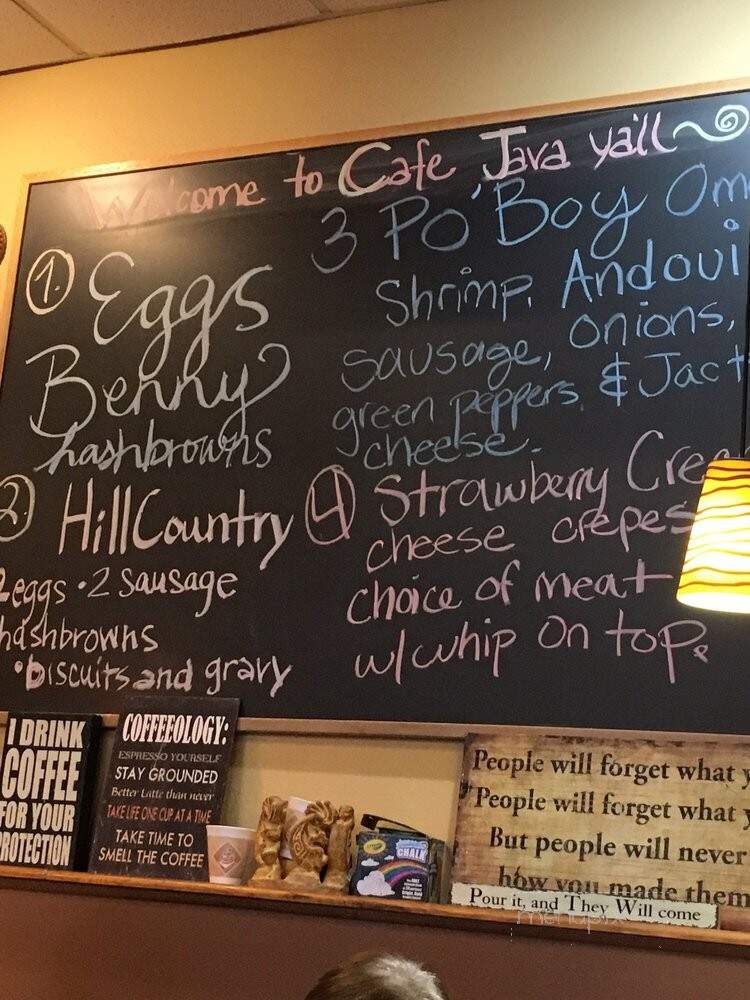 Welcome to Cafe Java yall
1. Eggs
Benny
hashbrowns
2 Hill Country
2 eggs • 2 sausage
hashbrowns
• biscuits and gravy
3 Po'Boy Om
Shrimp, Andoui
sausage, onions,
green peppers, & Jack
cheese.
4 Strawberry Cre
cheese crepes
choice of meat
w/ whip on top.
I DRINK
COFFEE
FOR YOUR
PROTECTION
COFFEEOLOGY:
ESPRESSO YOURSELF
STAY GROUNDED
Better Latte than never
TAKE LIFE ONE CUP AT A TIME
TAKE TIME TO
SMELL THE COFFEE
Crayola
CHALK
People will forget what y
People will forget what y
But people will never
how you made them
Pour it, and They Will come
menupix